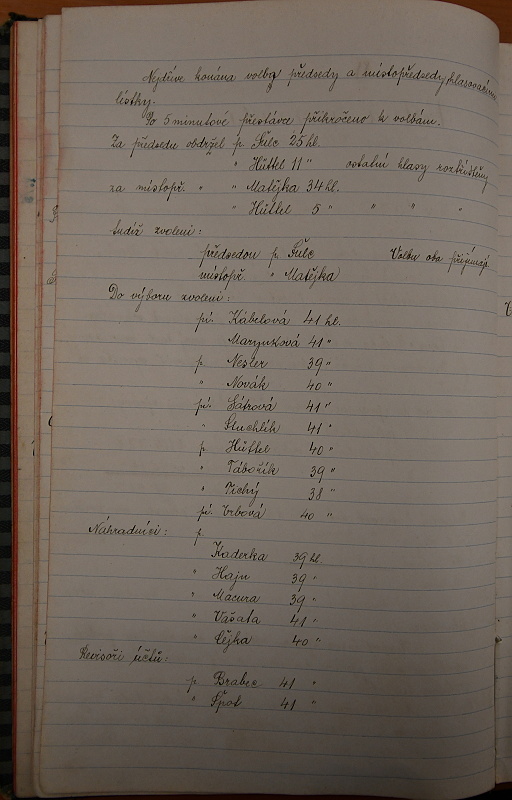 Nejdříve konána volba předsedy a místopředsedy hlasovacími
lístky.
Po 5 minutové přestávce přikročeno k volbám.
Za předsedu obdržel p. Šulc 25 hl.
" Hüttel 11 " ostatní hlasy roztříštěny
za místopř. " " Matějka 34 hl.
" Hüttel 5 " " " "
tudíž zvoleni:
předsedou p. Šulc Volbu oba přijímají
místopř. " Matějka
Do výboru zvoleni:
pí. Kábelová 41 hl.
Marynková 41 "
p. Nesler 39 "
" Novák 40 "
pí. Šátrová 41 "
" Stuchlík 41 "
p. Hüttel 40 "
" Tábořík 39 "
" Tichý 38 "
pí. Vrbová 40 "
Náhradníci: p.
Kaderka 39 hl.
" Hajn 39 "
" Macura 39 "
" Vášata 41 "
" Čejka 40 "
Revisoři účtů:
p. Brabec 41 "
" Špot 41 "